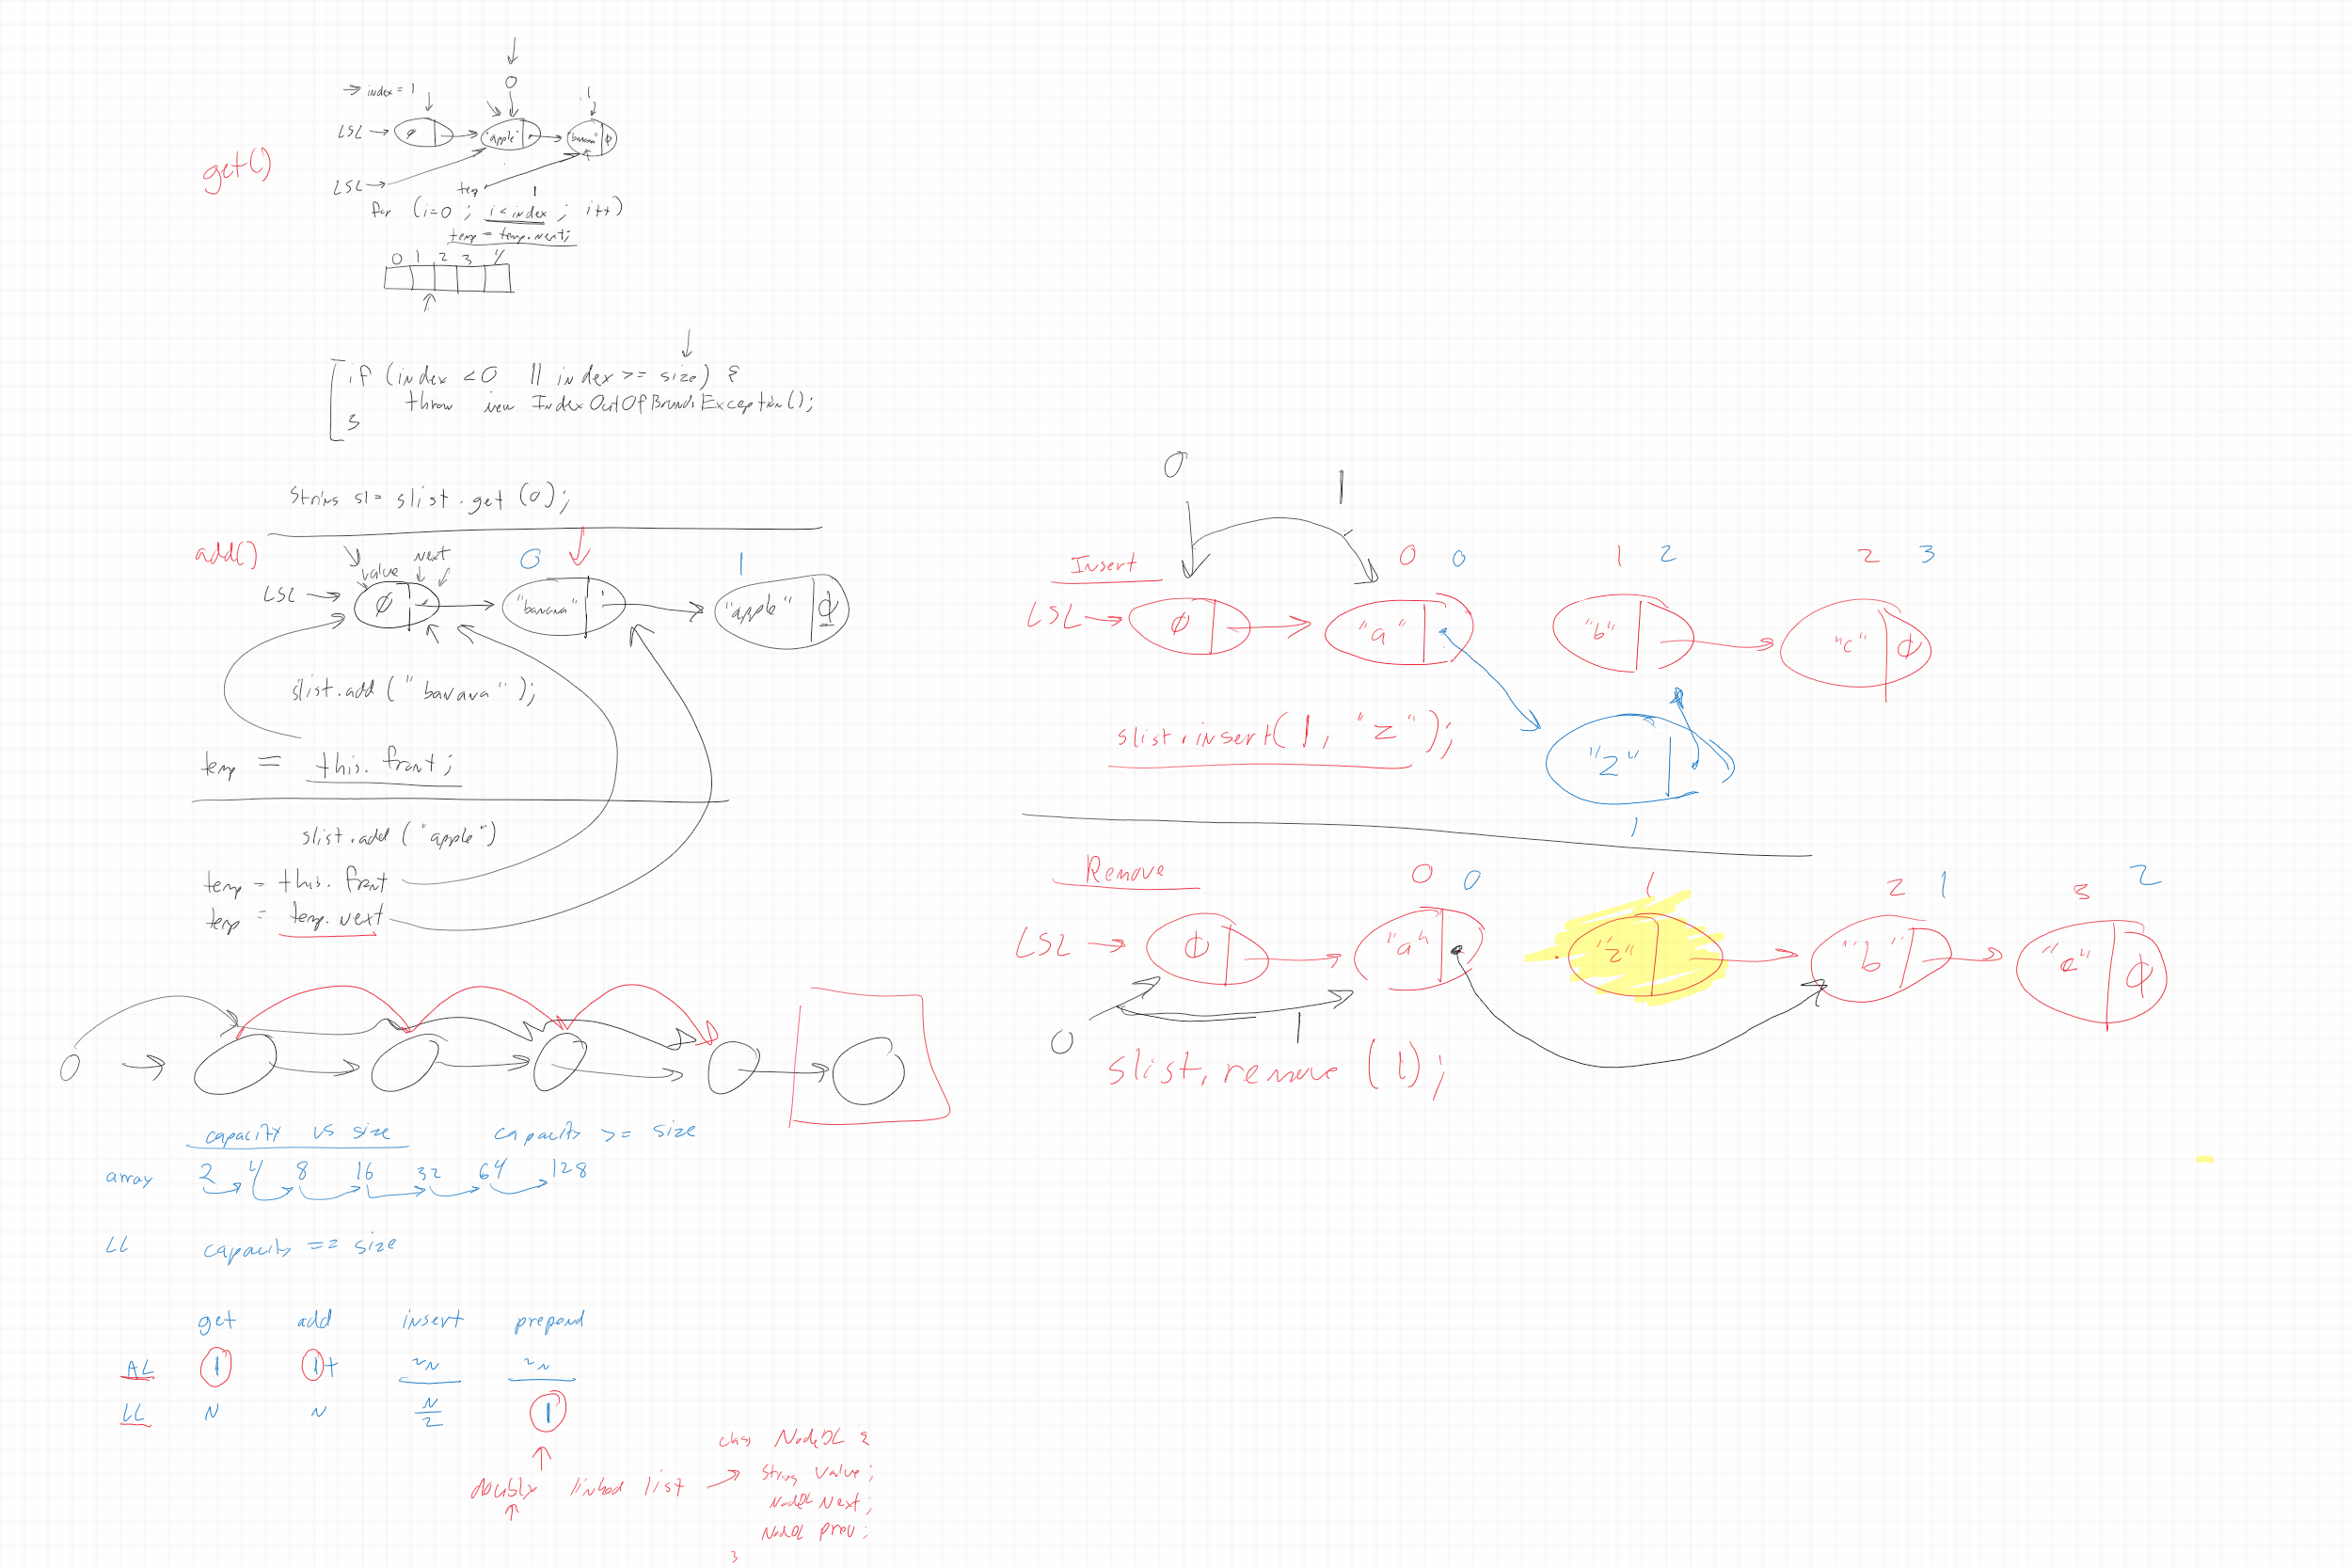 0
→ index = 1 1
LSL → φ "apple" "banana" φ
get()
LSL →
temp 1
for (i=0 ; i < index ; i++)
temp = temp.next;
0 1 2 3 4
if (index < 0 || index >= size) {
throw new IndexOutOfBoundsException();
}
String s1 = slist.get (0);
add()
value next 0 1
LSL → φ "banana" "apple" φ
slist.add ("banana");
temp = this.front;
slist.add ("apple")
temp = this.front
temp = temp.next
0
capacity vs size capacity >= size
array 2 4 8 16 32 64 128
LL capacity == size
get add insert prepend
AL 1 1+ ~N ~N
LL N N N/2 1
doubly linked list →
class NodeDL {
String value;
NodeDL next;
NodeDL prev;
}
0 1
Insert 0 0 1 2 2 3
LSL → φ "a" "b" "c" φ
slist.insert(1, "z");
"z"
1
Remove 0 0 1 2 1 3 2
LSL → φ "a" "z" "b" "c" φ
0 1
slist.remove (1);